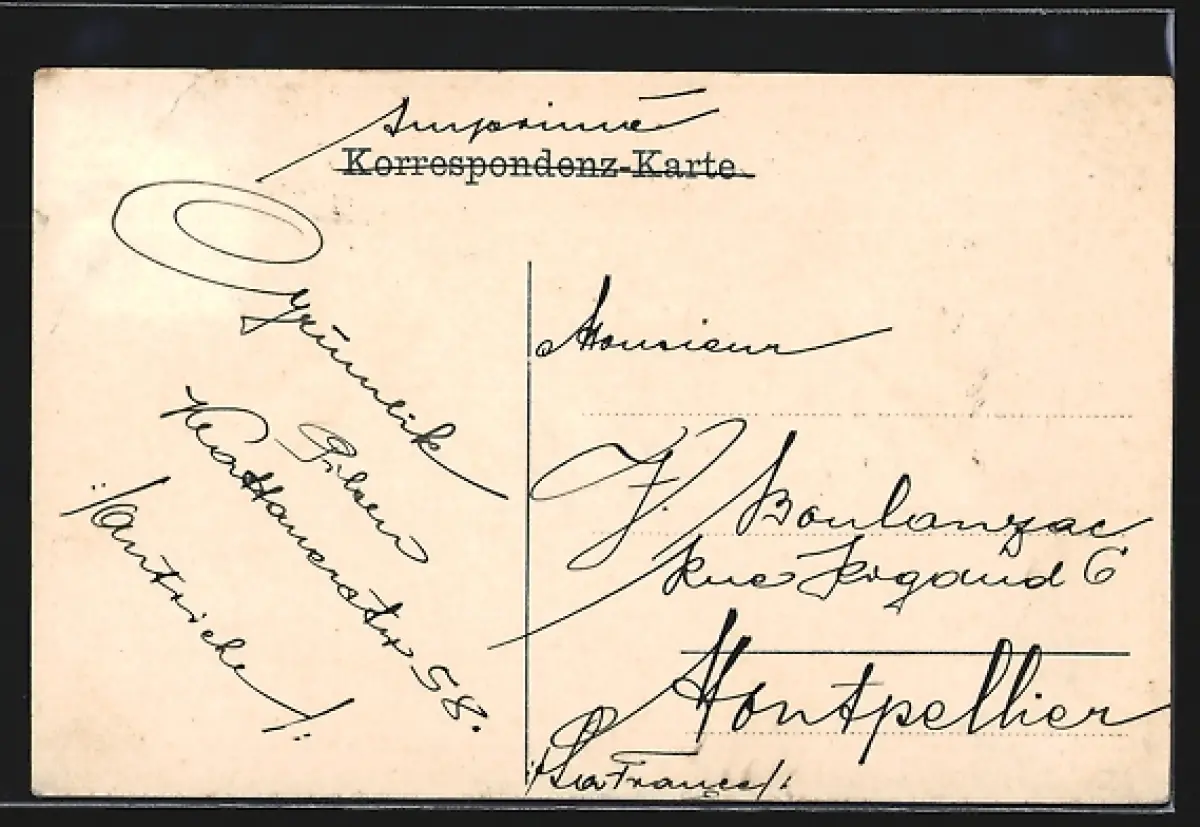 Imprimé
Korrespondenz-Karte.
Grünlik
Pilsen
58.
/:autriche/:
Monsieur
J. Boulanzac
Rue Rigaud 6
Montpellier
/:La France/: